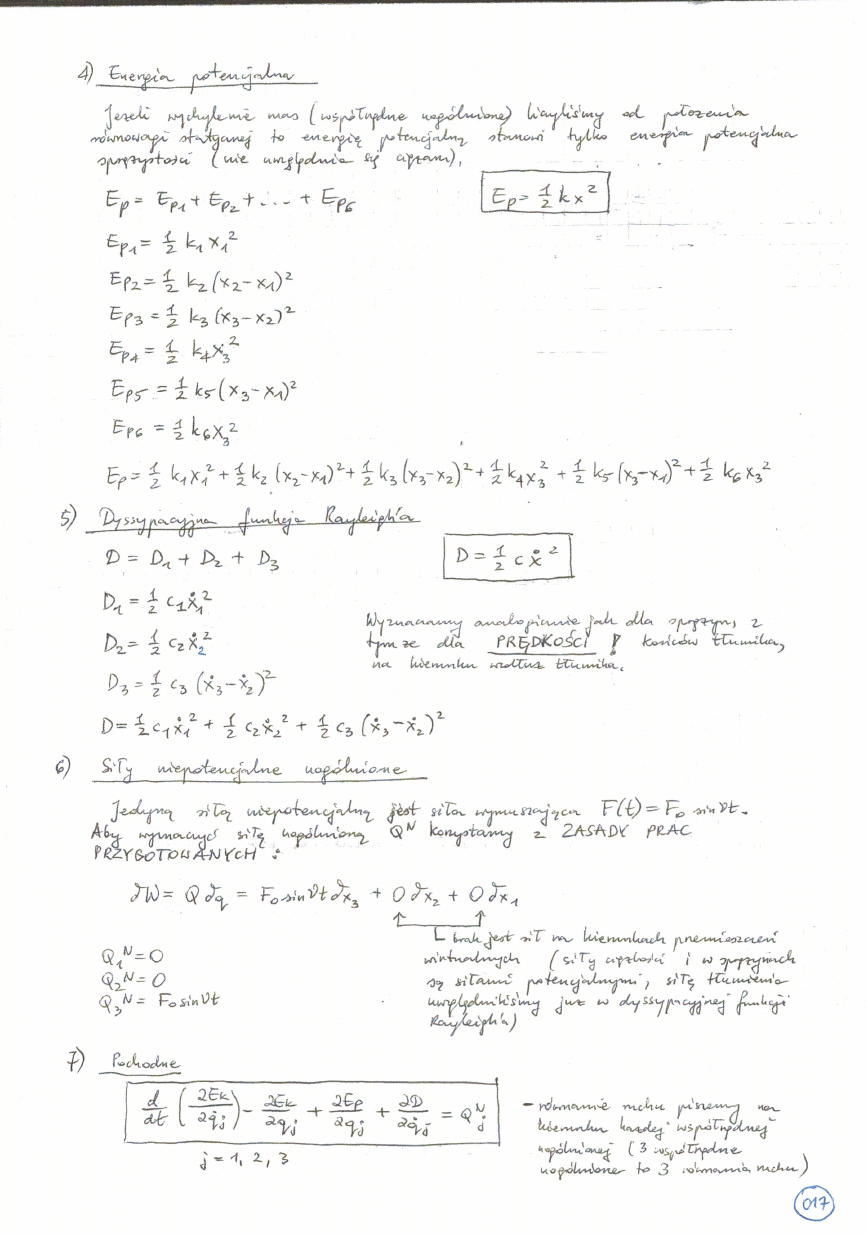 4) Energia potencjalna
Jeżeli wychylenie mas (współrzędne uogólnione) liczyliśmy od położenia
równowagi statycznej to energię potencjalną stanowi tylko energia potencjalna
sprężystości (nie uwzględnia się ciężaru),
Ep = Ep1 + Ep2 + ... + Ep6
Ep = 1/2 kx²
Ep1 = 1/2 k1 x1²
Ep2 = 1/2 k2 (x2 - x1)²
Ep3 = 1/2 k3 (x3 - x2)²
Ep4 = 1/2 k4 x3²
Ep5 = 1/2 k5 (x3 - x1)²
Ep6 = 1/2 k6 x3²
Ep = 1/2 k1 x1² + 1/2 k2 (x2 - x1)² + 1/2 k3 (x3 - x2)² + 1/2 k4 x3² + 1/2 k5 (x3 - x1)² + 1/2 k6 x3²
5) Dyssypacyjna funkcja Rayleigh'a
D = D1 + D2 + D3
D = 1/2 c ẋ²
D1 = 1/2 c1 ẋ1²
D2 = 1/2 c2 ẋ2²
D3 = 1/2 c3 (ẋ3 - ẋ2)²
Wyznaczamy analogicznie jak dla sprężyn, z
tym że dla PRĘDKOŚCI ! końców tłumika,
na kierunku wzdłuż tłumika.
D = 1/2 c1 ẋ1² + 1/2 c2 ẋ2² + 1/2 c3 (ẋ3 - ẋ2)²
6) Siły niepotencjalne uogólnione
Jedyną siłą niepotencjalną jest siła wymuszająca F(t) = F0 sin νt.
Aby wyznaczyć siłę uogólnioną Q^N korzystamy z ZASADY PRAC
PRZYGOTOWANYCH :
δW = Q δq = F0 sin νt δx3 + 0 δx2 + 0 δx1
brak jest sił na kierunkach przemieszczeń
wirtualnych (siły ciężkości i w sprężynach
są siłami potencjalnymi, siłę tłumienia
uwzględniliśmy już w dyssypacyjnej funkcji
Rayleigh'a)
Q1^N = 0
Q2^N = 0
Q3^N = F0 sin νt
7) Pochodne
d/dt (∂Ek/∂q̇j) - ∂Ek/∂qj + ∂Ep/∂qj + ∂D/∂q̇j = Qj^N
j = 1, 2, 3
- równanie ruchu piszemy na
kierunku każdej współrzędnej
uogólnionej (3 współrzędne
uogólnione to 3 równania ruchu)
017